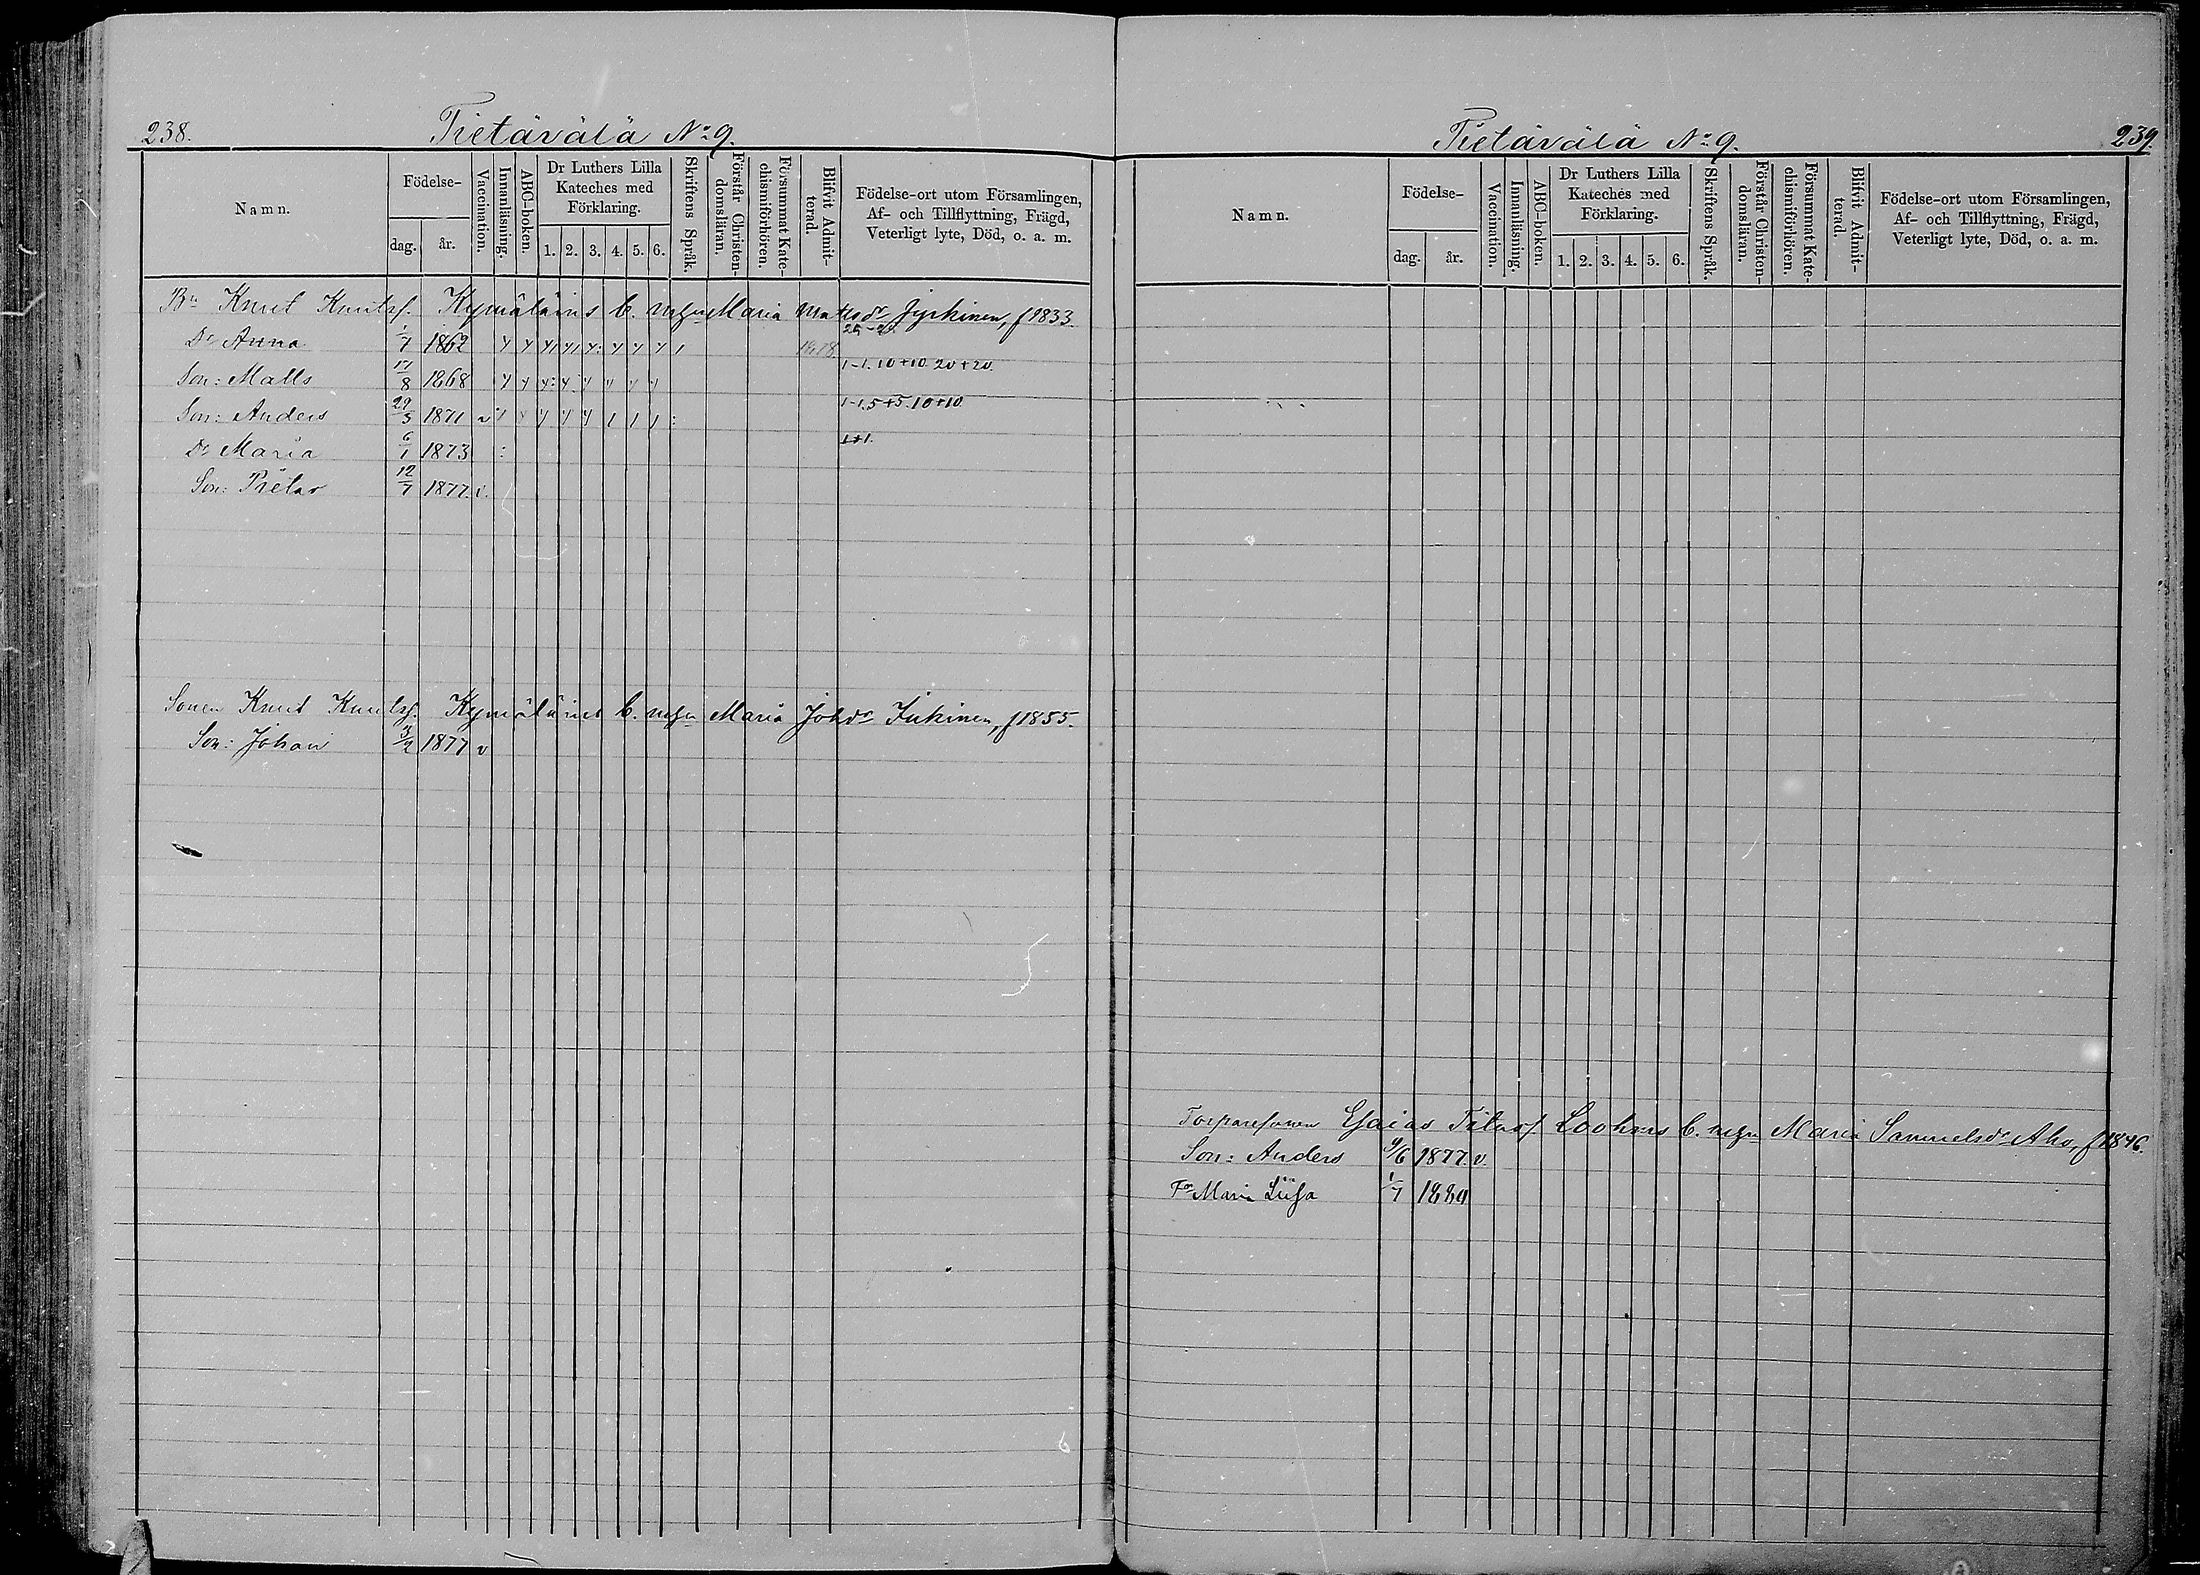 238.
Tietävälä No 9.
Namn.
Födelse-
dag.
år.
Vaccination.
Innanläsning.
ABC-boken.
Dr Luthers Lilla
Kateches med
Förklaring.
1. 2. 3. 4. 5. 6.
Skriftens Språk.
Förstår Christen-
domsläran.
Försummat Kate-
chismiförhören.
Blifvit Admit-
terad.
Födelse-ort utom Församlingen,
Af- och Tillflyttning, Frägd,
Veterligt lyte, Död, o. a. m.
Bn Knut Knutsf. Kymäläins b. m. hu Maria Mattsdr Jyrkinen, f 1833.
Dr Anna 1/7 1862 1878
Son: Matts 17/8 1868 1-1. 10+10. 20+20.
Son: Anders 29/3 1871 v 1-1.5+5.10+10.
Dr Maria 6/1 1873 1+1.
Son: Pietar 12/7 1877. v.
Sonen Knut Knutsf. Kymäläins b. m. hu Maria Johdr Inkinen, f 1855.
Son: Johan 3/2 1877 v
Tietävälä No 9.
239.
Namn.
Födelse-
dag.
år.
Vaccination.
Innanläsning.
ABC-boken.
Dr Luthers Lilla
Kateches med
Förklaring.
1. 2. 3. 4. 5. 6.
Skriftens Språk.
Förstår Christen-
domsläran.
Försummat Kate-
chismiförhören.
Blifvit Admit-
terad.
Födelse-ort utom Församlingen,
Af- och Tillflyttning, Frägd,
Veterligt lyte, Död, o. a. m.
Torparesonen Esaias b. m. hu Maria Samuelsdr Aho, f 1846.
Son: Anders 9/6 1877. v.
Maria Liisa 1/7 1880